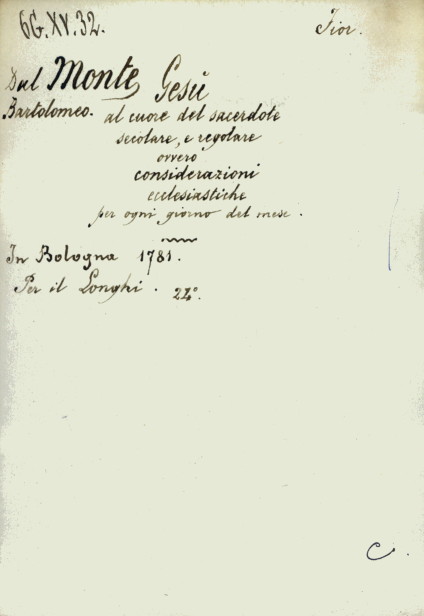 6G.XV.32. Fior.
Dal Monte Gesù
Bartolomeo. al cuore del sacerdote
secolare, e regolare
ovvero
considerazioni
ecclesiastiche
per ogni giorno del mese.
In Bologna 1781.
Per il Longhi. 24°.
C.